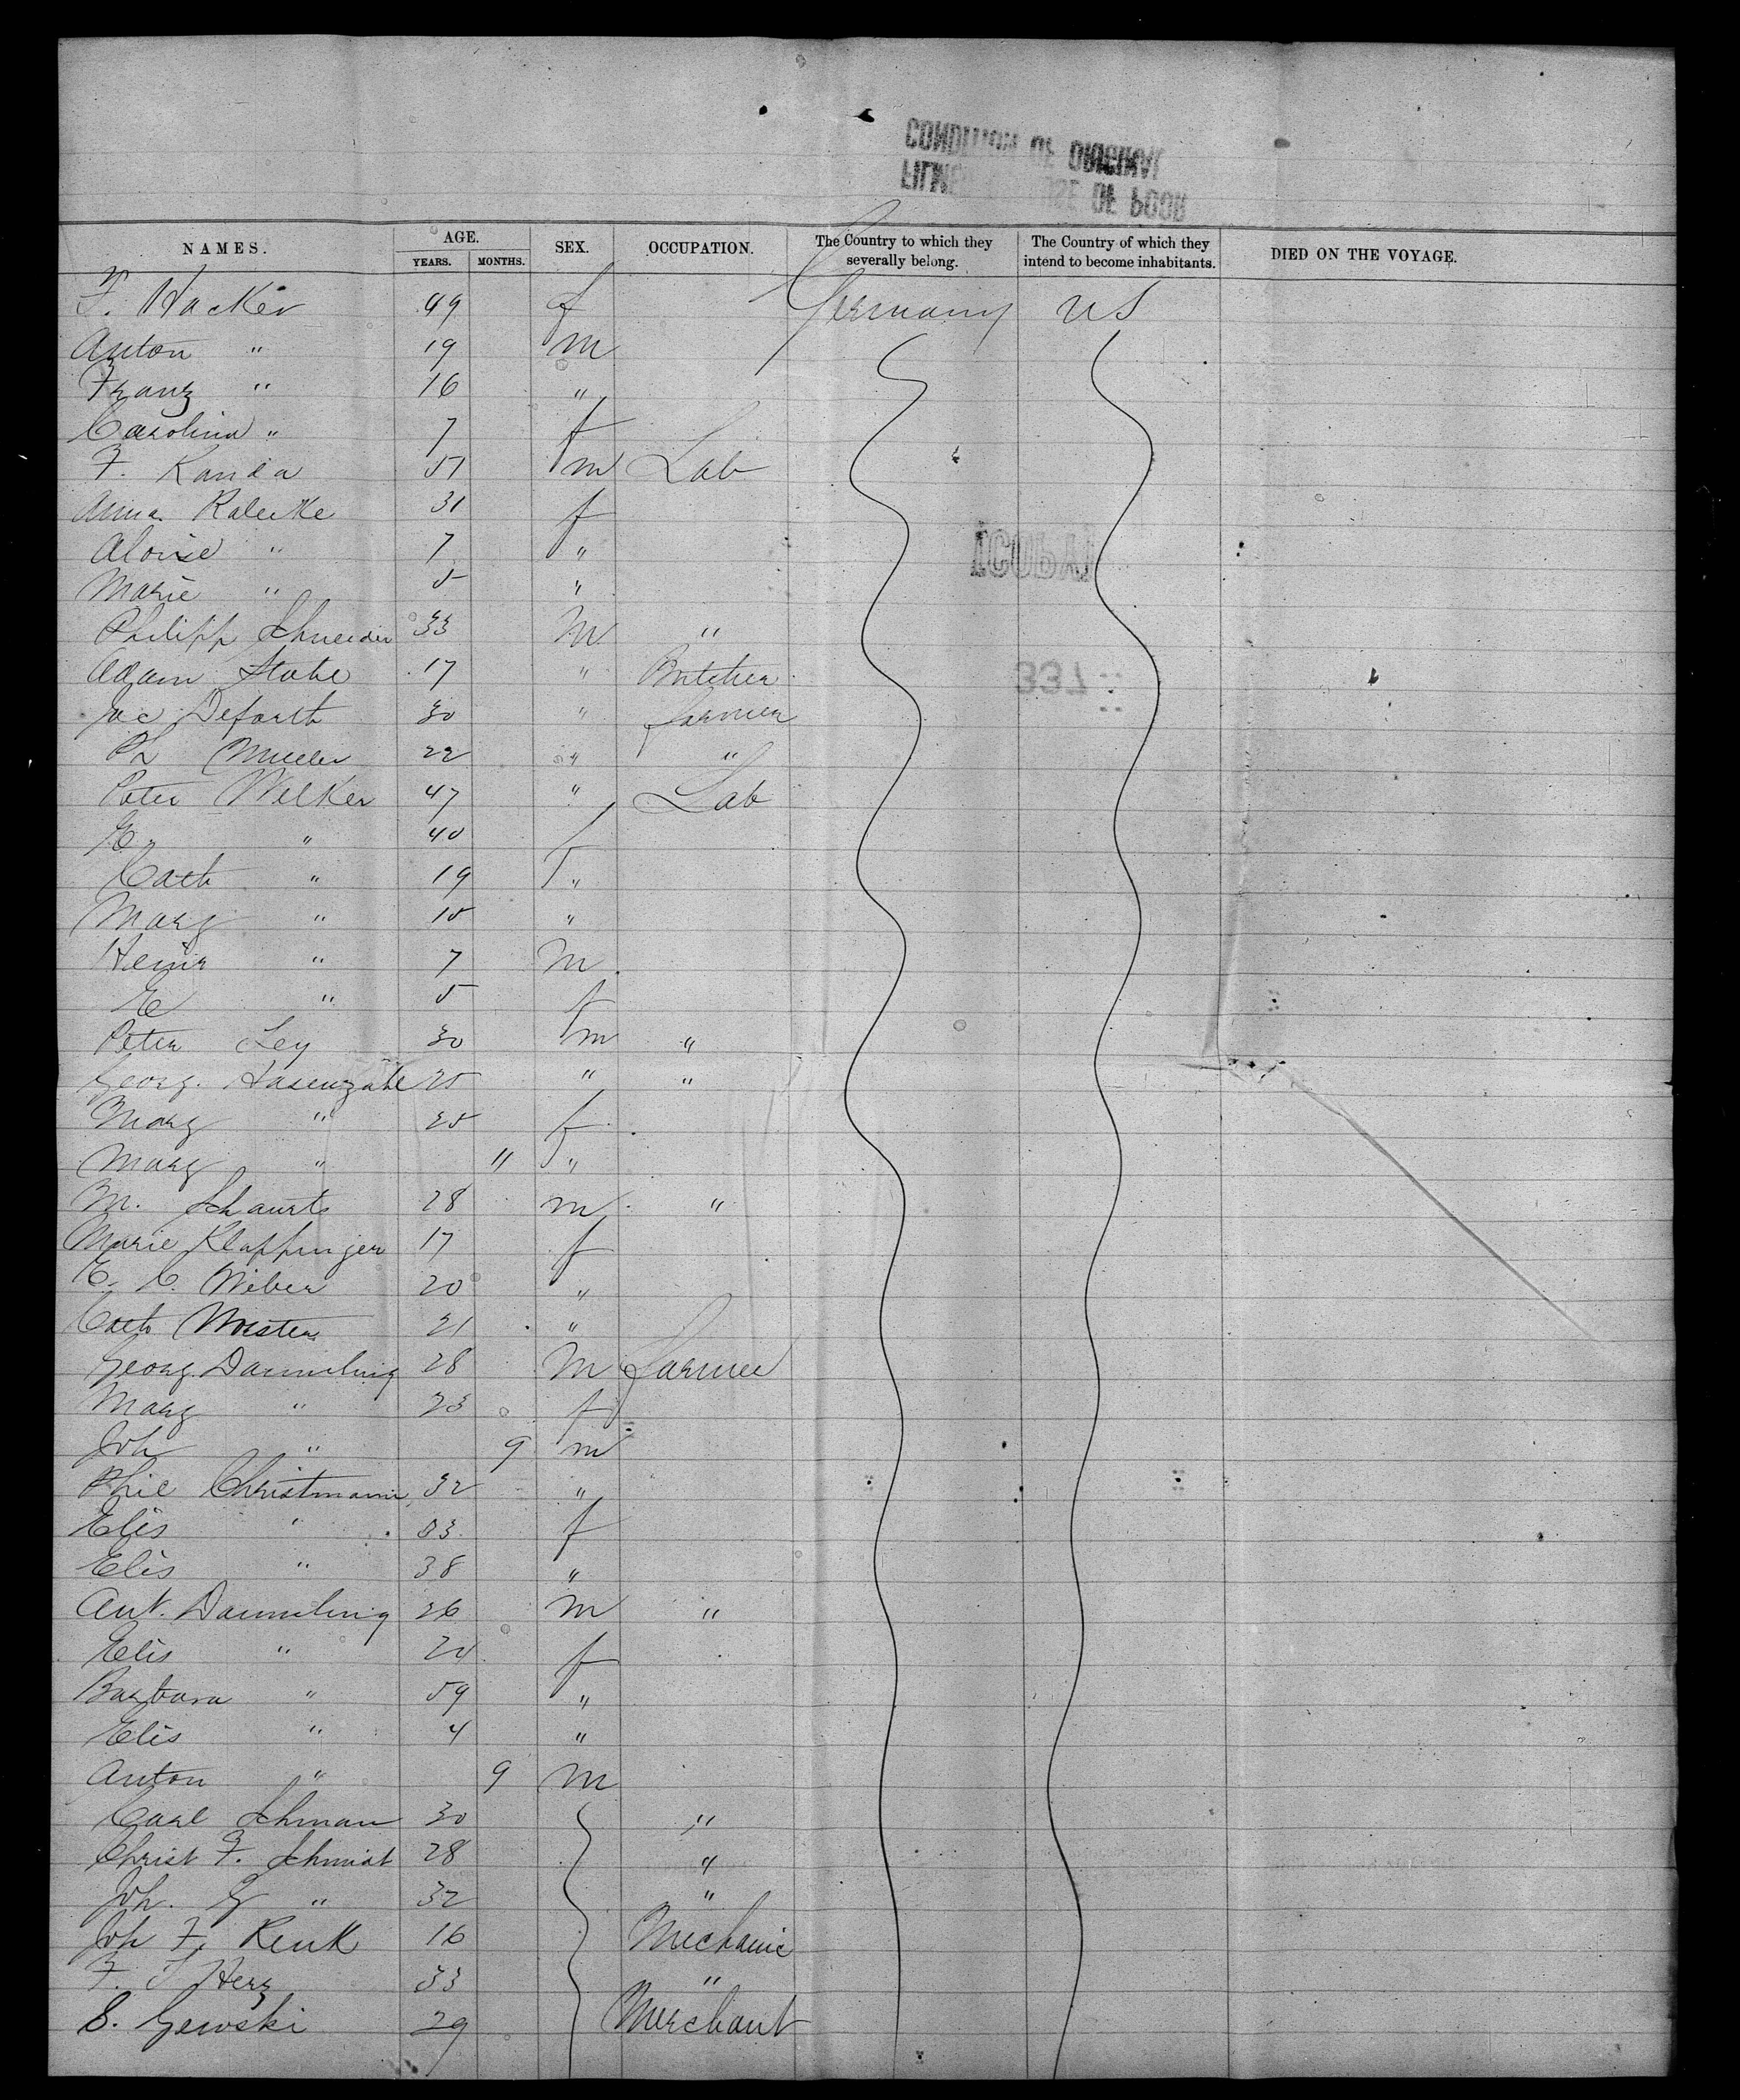 NAMES. AGE. YEARS. MONTHS. SEX. OCCUPATION. The Country to which they severally belong. The Country of which they intend to become inhabitants. DIED ON THE VOYAGE.
F. Hacker 49 f Germany US
Anton " 19 m
Franz " 16 "
Carolina " 7 f
F. Kanda 51 m Lab
Anna 31 f
Aloise " 7 "
Marie " 5 "
Philipp Schneider 33 m "
Adam 17 " Butcher
Jac Deforth 30 " farmer
Ph Mueller 22 " "
Peter Welker 47 " Lab
E. " 40 f
Cath " 19 "
Marg " 15 "
Heinr " 7 m
E " 5 f
Peter Ley 30 m "
Georg. Hasenzahl 25 " "
Marg " 25 f
Marg " 11 "
M. 28 m "
Marie Klappinger 17 f
E. C. Weber 20 "
Cath 21 "
Georg. Daumling 28 m farmer
Marg " 23 f
Joh " 9 m
Phil Christmann 32 "
Elis " 63 f
Elis " 38 "
Ant. Daumling 26 m "
Elis " 24 f
Barbara " 59 "
Elis " 4 "
Anton " 9 m
Carl 30 "
Christ F. Schmidt 28 "
Joh. G " 32 "
Joh F. Renk 16 Mechanic
F. J Herz 33 "
S. Gewski 29 Merchant